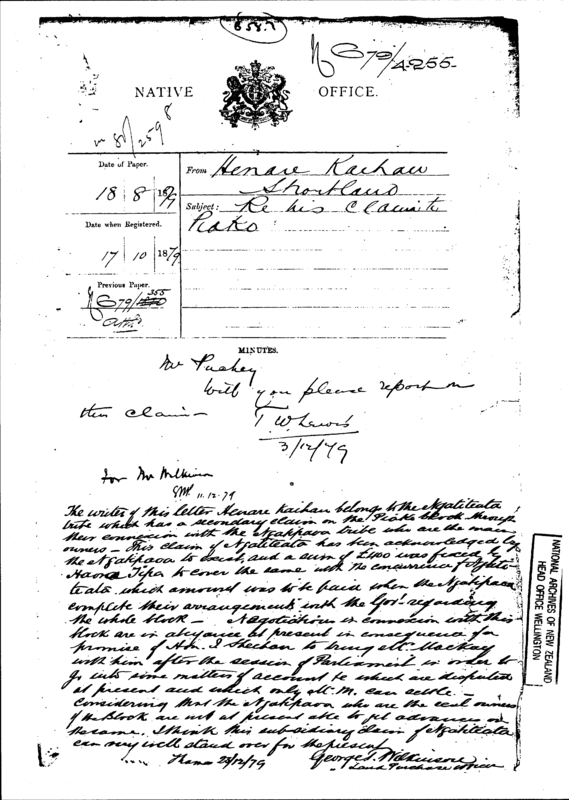 858.7
N G 79/4255
NATIVE OFFICE.
Date of Paper.
18 | 8 | 1879
From Henare Kaihau
Shortland
Subject: Re his claim to
Piako
Date when Registered.
17 | 10 | 1879
Previous Paper.
N G 79/355
MINUTES.
Mr Puckey
Will you please report on
this claim
T. W. Lewis
3/12/79
For Mr Wilkinson
11.12.79
The writer of this letter Henare Kaihau belongs to the Ngatiteata
tribe which has a secondary claim on the Piako block through
their connexion with the Ngatipaoa tribe who are the main
owners – This claim of Ngatiteata has been acknowledged by
the Ngatipaoa to exist and a sum of £400 was fixed by
Haora Tipa to cover the same with the concurrence of Ngati
teata which amount was to be paid when the Ngatipaoa
complete their arrangements with the Govt regarding
the whole block – Negotiations in connexion with this
block are in abeyance at present in consequence of a
promise of Hon. J Sheehan to bring Mr. Mackay
with him after the session of Parliament in order to
go into some matters of account &c which are disputed
at present and which only Mr. M. can settle –
Considering that the Ngatipaoa who are the real owners
of the Block are not at present able to get advances on
the same. I think this subsidiary claim of Ngatiteata
can very well stand over for the present
George T. Wilkinson
Thames 23/12/79 Land Purchase Officer
NATIONAL ARCHIVES OF NEW ZEALAND
HEAD OFFICE WELLINGTON